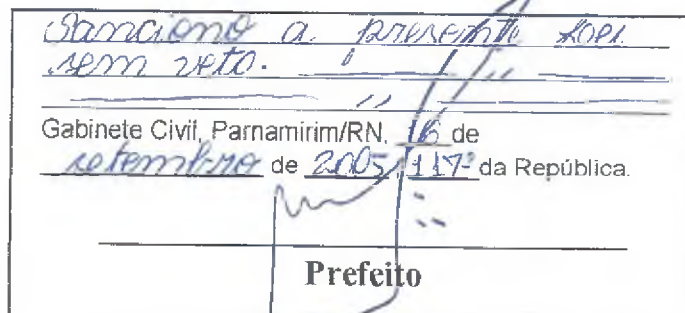 Sanciono a presente Lei
sem veto.
Gabinete Civil, Parnamirim/RN, 16 de
setembro de 2005, 117º da República.
Prefeito